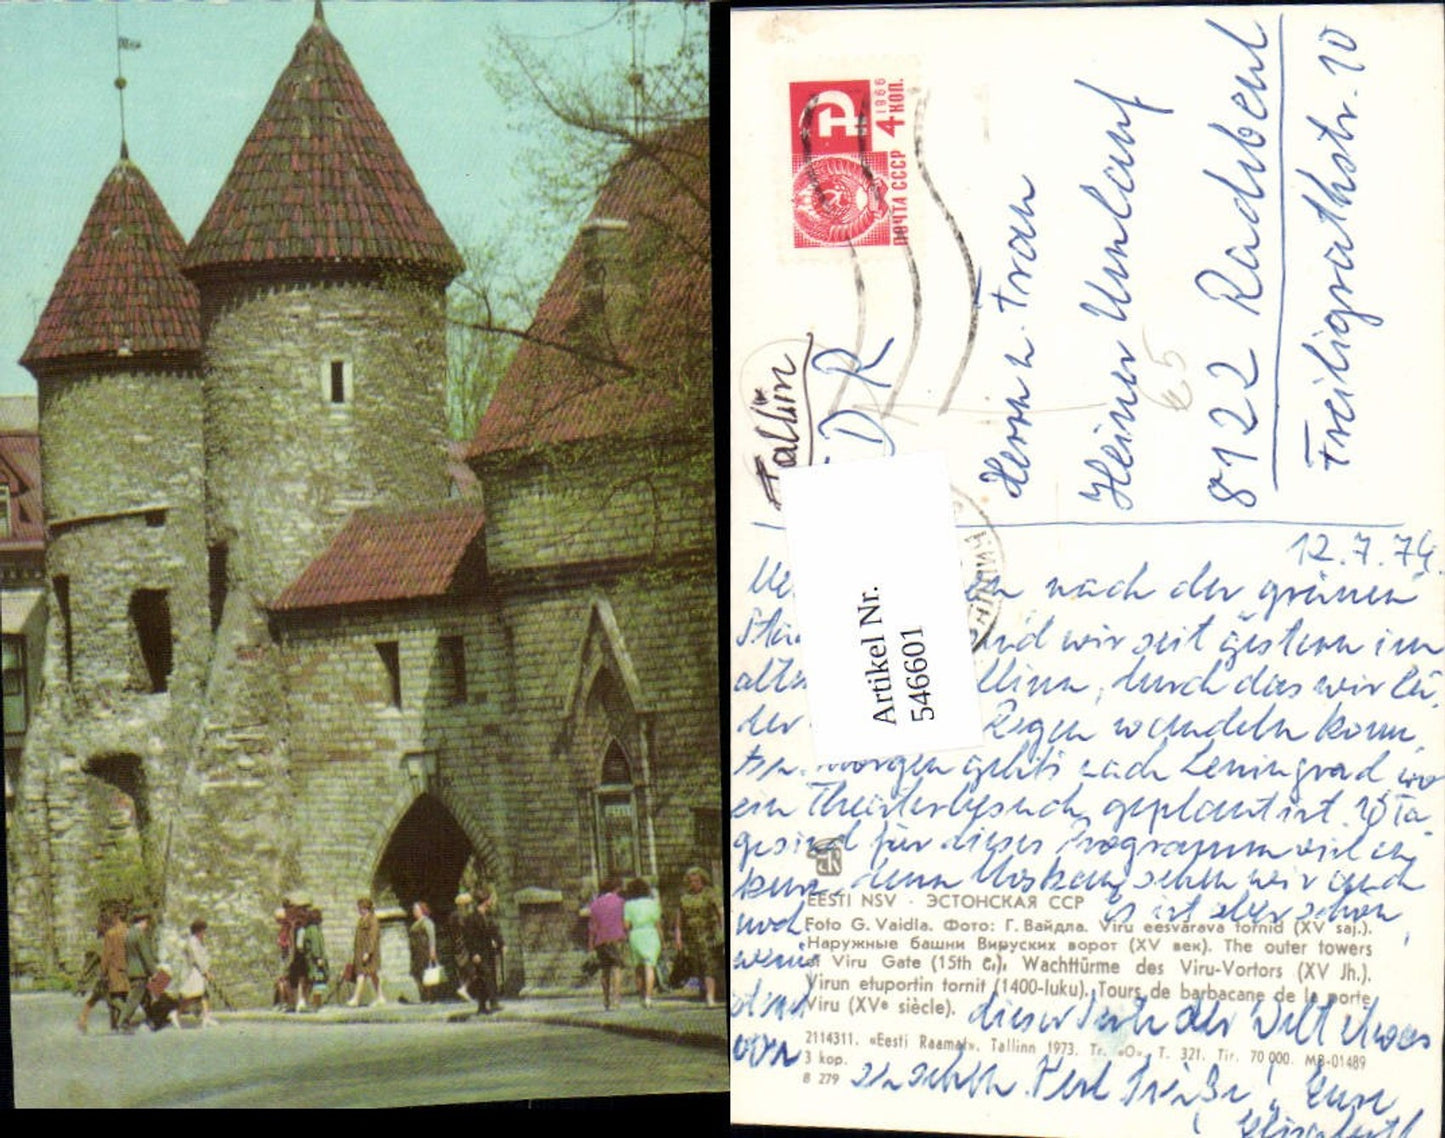 1966
4 коп.
ПОЧТА СССР
Tallinn
DDR
Herrn u. Frau
Heiner Umlauf
8122 Radebeul
Freiligrathstr. 10
65
Artikel Nr.
546601
12.7.74.
nach der grünen
sind wir seit gestern im
durch das wir lei
der Regen wandeln konn
ten. Morgen gehts nach Leningrad, wo
ein Theaterbesuch geplant ist. 10 Ta
ge sind für dieses Programm viel zu
kurz, denn Moskau sehen wir auch
noch. Es ist aber schon,
wenig
EESTI NSV · ЭСТОНСКАЯ ССР
Foto G. Vaidla. Фото: Г. Вайдла. Viru eesvärava tornid (XV saj.).
Наружные башни Вируских ворот (XV век). The outer towers
of Viru Gate (15th c.), Wachttürme des Viru-Vortors (XV Jh.).
Virun etuportin tornit (1400-luku). Tours de barbacane de la porte
Viru (XVe siècle).
dieser Seite der Welt etwas
von
2114311. «Eesti Raamat». Tallinn 1973. Tr. «O». T. 321. Tir. 70 000. MB-01489
3 kop.
8 279
zu sehen. Herzl. Grüße, Eure
Elisabeth